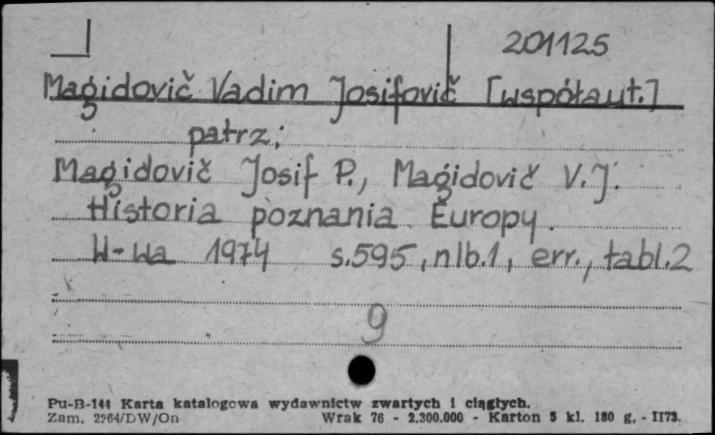 201125
Magidovič Vadim Josifovič [współaut.]
patrz:
Magidovič Josif P., Magidovič V.J.
Historia poznania Europy.
W-wa 1974 s.595, nlb.1, err., tabl.2
9
Pu-B-144 Karta katalogowa wydawnictw zwartych i ciągłych.
Zam. 2264/DW/On Wrak 76 - 2.300.000 - Karton 5 kl. 180 g. - II73.